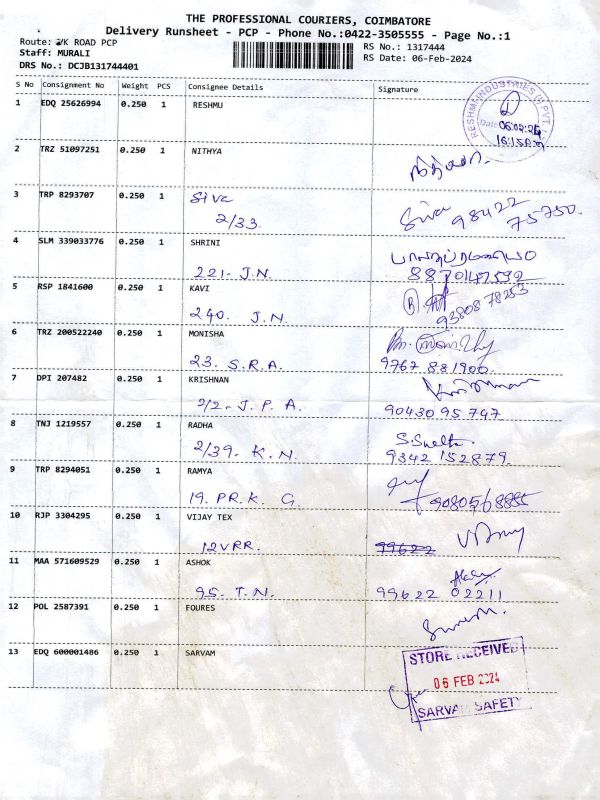 THE PROFESSIONAL COURIERS, COIMBATORE
Delivery Runsheet - PCP - Phone No.:0422-3505555 - Page No.:1
Route: K ROAD PCP
Staff: MURALI
DRS No.: DCJB131744401
RS No.: 1317444
RS Date: 06-Feb-2024
S No Consignment No Weight PCS Consignee Details Signature
1 EDQ 25626994 0.250 1 RESHMU
RESHMA INDUSTRIES PVT
Date 06.02.24
2 TRZ 51097251 0.250 1 NITHYA நித்யா
3 TRP 8293707 0.250 1 Siva Siva 98422
2/33. 75750.
4 SLM 339033776 0.250 1 SHRINI
221- J.N. 8870147592
5 RSP 1841600 0.250 1 KAVI
240. J.N. 93808 78253
6 TRZ 200522240 0.250 1 MONISHA
23. S.R.A. 9767 881900.
7 DPI 207482 0.250 1 KRISHNAN
2/2- J.P.A. 90430 95 747
8 TNJ 1219557 0.250 1 RADHA
2/39. K.N. 9342 152879.
9 TRP 8294051 0.250 1 RAMYA
19. PR.K. G.
10 RJP 3304295 0.250 1 VIJAY TEX
12VRR. 99622
11 MAA 571609529 0.250 1 ASHOK
95. T.N. 99622 02211
12 POL 2587391 0.250 1 FOURES
13 EDQ 600001486 0.250 1 SARVAM
STORE RECEIVED
06 FEB 2024
SARVAM SAFETY